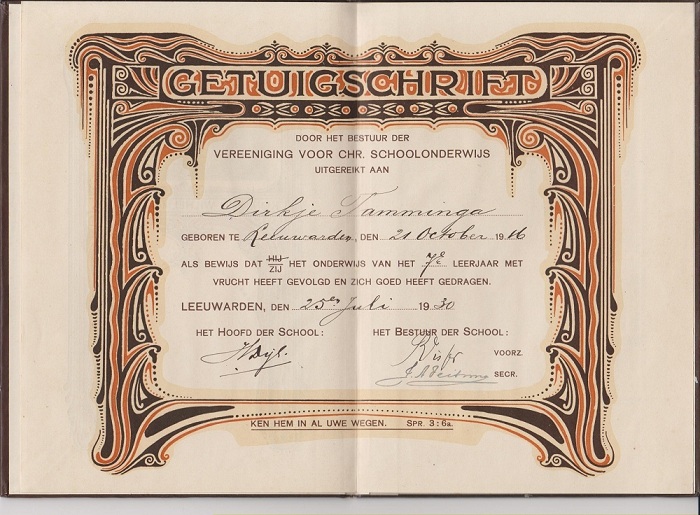 GETUIGSCHRIFT
DOOR HET BESTUUR DER
VEREENIGING VOOR CHR. SCHOOLONDERWIJS
UITGEREIKT AAN
Dirkje Tamminga
GEBOREN TE Leeuwarden, DEN 21 October 1916
ALS BEWIJS DAT HIJ ZIJ HET ONDERWIJS VAN HET 7e LEERJAAR MET
VRUCHT HEEFT GEVOLGD EN ZICH GOED HEEFT GEDRAGEN.
LEEUWARDEN, DEN 25en Juli 1930
HET HOOFD DER SCHOOL: HET BESTUUR DER SCHOOL:
VOORZ.
SECR.
KEN HEM IN AL UWE WEGEN. SPR. 3:6a.